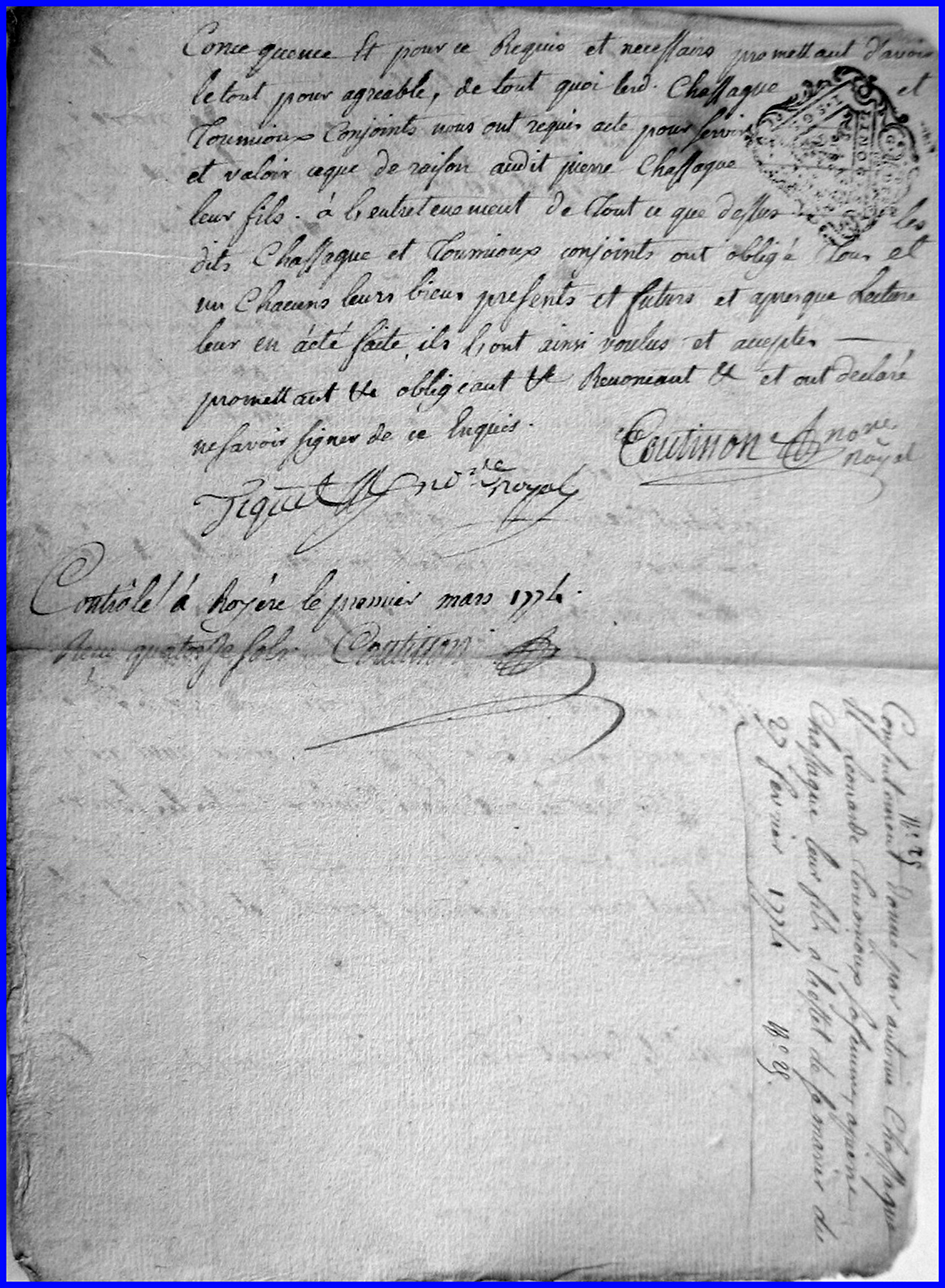 Consequence Et pour ce Requis et necessaire promettant d'avoir
le tout pour agreable, de tout quoi lesd. Chassagne et
Toumioux Conjoints nous ont requis acte pour servir
et valoir ceque de raison audit pierre Chassagne
leur fils. à L'entretenement de Tout ce que dessus les
dits Chassagne et Toumioux conjoints ont obligé Tous et
un Chacuns leurs biens presents et futurs et apresque Lecture
leur en àété faite, ils L'ont ainsi voulus et acceptes
promettant &c obligeant &c Renonçant &c et ont declaré
nesavoir signer de ce Enquis.
Coutisson nore royal
Jiquet nore royal
Contrôlé à Royére le premier mars 1774.
Recu quatorze sols Coutisson
N° 25
Consentement donné par antoine Chassagne
et Lonarde Toumioux sa femme, apierre
Chassagne leur fils à L'effet de se marier du
27 fevrier 1774
N° 25.
LIMOGES